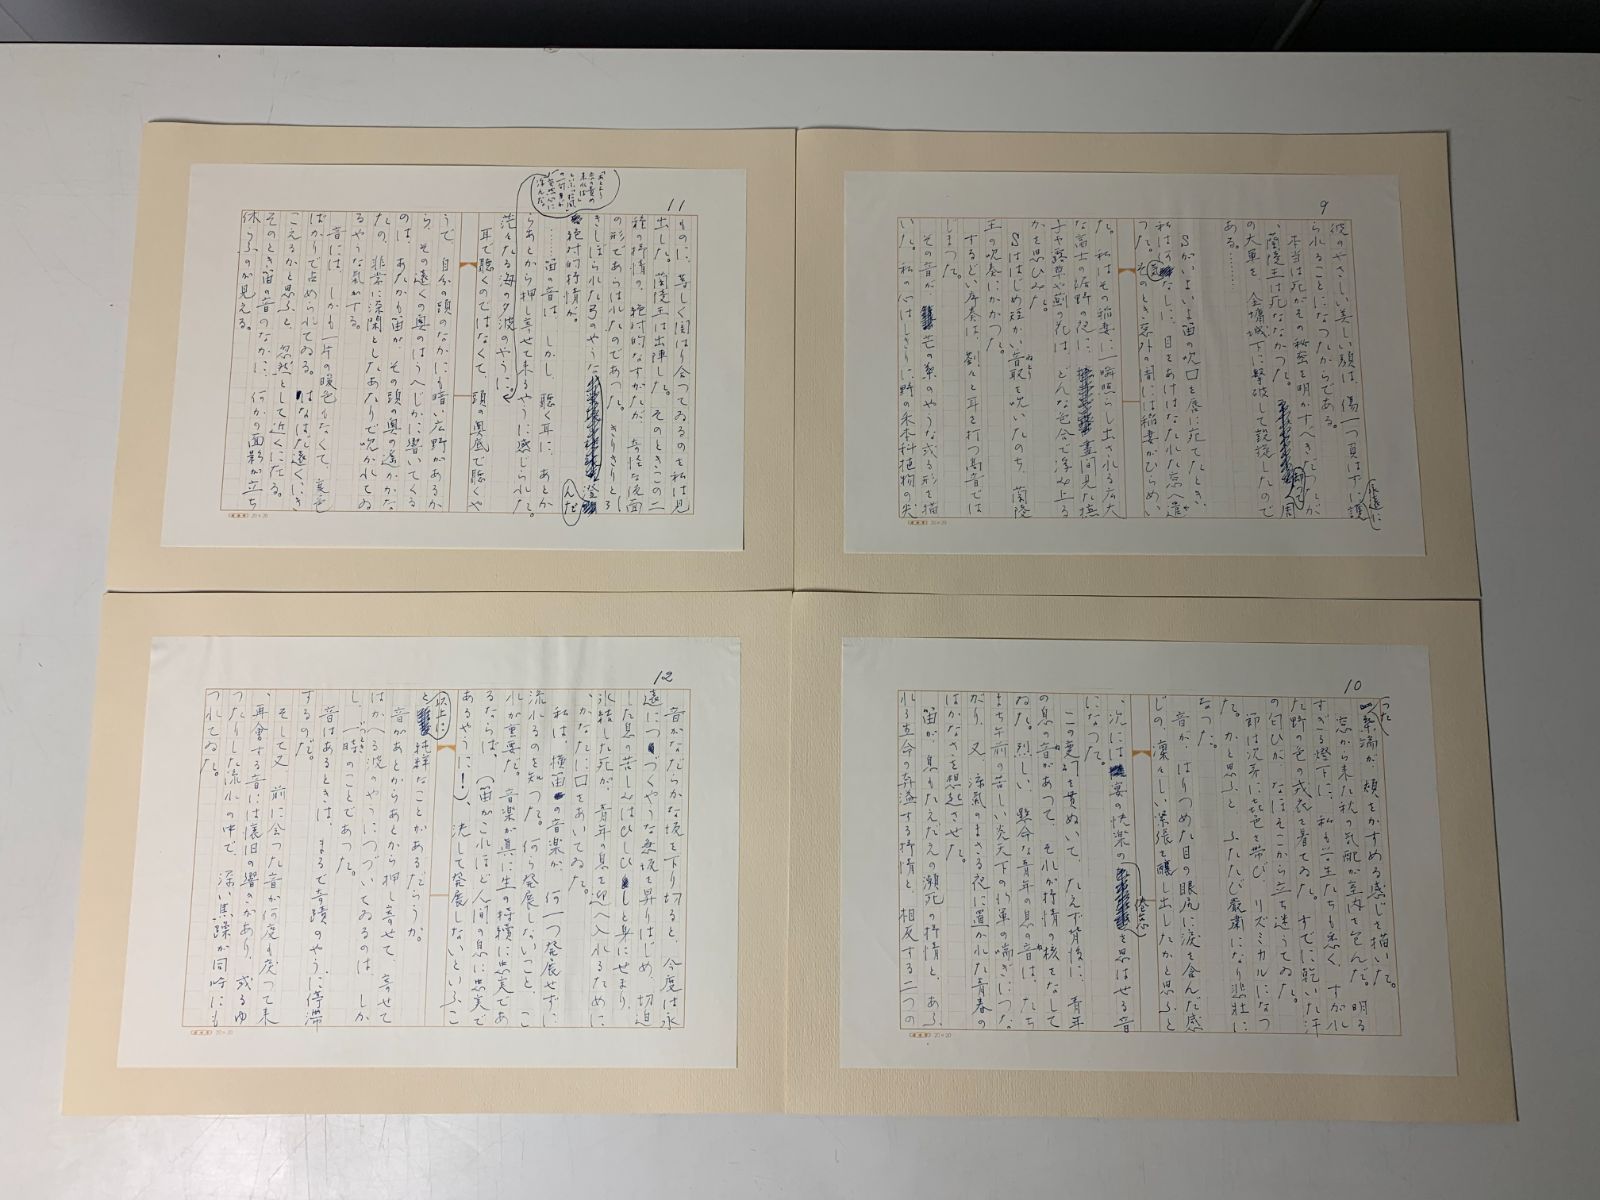 9
彼のやさしい美しい顔は、傷一つ負はずに護
永遠に
られることになつたからである。
本当は死がその秘密を明かすべきだつたが
、蘭陵王は死ななかつた。
却つて周
の大軍を、金墉城下に撃破して凱旋したので
ある。……
Sがいよいよ笛の吹口を唇に宛てたとき、
私は
気
なしに、目をあけはなたれた窓へ遣
つた。そのとき窓外の闇には稲妻がひらめい
た。私はその稲妻に一瞬照らし出される広大
な富士の裾野の
に、
昼間見た撫
子や露草や薊の花は、どんな色合で浮み上る
かを思ひみた。
Sははじめ短かい音取を吹いたのち、蘭陵
ねとり
王の吹奏にかかつた。
するどい序奏は、劉々と耳を打つ高音では
じまつた。
その音が、
芒の葉のやうな或る形を描
いた。私の心はしきりに野の禾本科植物の尖
20×20
10
つた
葉端が、頬をかすめる感じを描いた。
窓から来た秋の気配が室内を包んだ。明る
すぎる燈下に、私も学生たちも悉く、すがれ
た野の色の戎衣を着てゐた。すでに乾いた汗
の匂ひが、なほそこから立ち迷うてゐた。
節は次第に喜色を帯び、リズミカルになつ
た。かと思ふと、ふたたび厳粛になり悲壮に
なつた。
音が、はりつめた目の眼尻に涙を含んだ感
じの、凜々しい緊張を醸し出したかと思ふと
、次には
宴の快楽の
倦怠
を思はせる音
になつた。
この変
を貫ぬいて、たえず背後に、青年
の息の音があつて、それが抒情の核をなして
ゐた。烈しい、懸命な青年の息の音は、ただ
まち午前の苦しい炎天下の行軍の喘ぎにつな
がり、又、涼気のまさる夜に置かれた青春の
はかなさを想起させた。
笛が、息もたえだえの瀕死の抒情と、あふ
れる生命の奔溢する抒情と、相反する二つの
20×20
11
ものに、等しく関はり合つてゐるのを私は見
出した。蘭陵王は出陣した。そのときこの二
種の抒情の、絶対的なすがたが、奇怪な仮面
の形であらはれたのであつた。きりきりとろ
きしぼられた弓のやうな
澄
んだ
絶対的抒情が。
……笛の音は、しかし、聴く耳に、あとか
らあとから押し寄せて来るやうに感じられた。
茫々たる海の夕波のやうに。
耳で聴くのではなくて、頭の奥底で聴くや
うで、自分の頭のなかにも暗い広野があるか
ら、その遠くの奥のはうへじかに響いてくる
のは、あたかも笛が、その頭の奥の遥かかな
たの、非常に深閑としたあたりで吹かれてゐ
るやうな気がする。
音には、しかも一片の暖色もなくて、寒色
ばかりで占められてゐる。はなはだ遠くにき
こえるかと思ふと、忽然として近くになる。
そのとき笛の音のなかに、何かの面影が立ち
休らふのが見える。
20×20
12
音がなだらかな坂を下り切ると、今度は永
遠につづくやうな無坂を昇りはじめ、切迫
した息の苦しみはひしひしと身にせまり、
氷結した死が、青年の息を迎へ入れるために
、かなたに口をあいてゐた。
私は、横笛の音楽が、何一つ発展せずに
流れるのを知つた。何ら発展しないこと、こ
れが重要だ。音楽が真に生の持続に忠実であ
るならば、（笛がこれほど人間の息に忠実で
あるやうに！）、決して発展しないといふこ
と
以上に
純粋なことがあるだらうか。
音があとからあとから押し寄せて、寄せて
はかへる波のやうにつづいてゐるのは、しか
し、一時のことであつた。
音はあるときは、まるで奇蹟のやうに停滞
するのだ。
そして又、前に会つた音が何度も戻つて来
、再會する音には懐旧の響きがあり、或るゆ
つたりした流れの中で、深い焦躁が同時にも
つれてゐた。
20×20